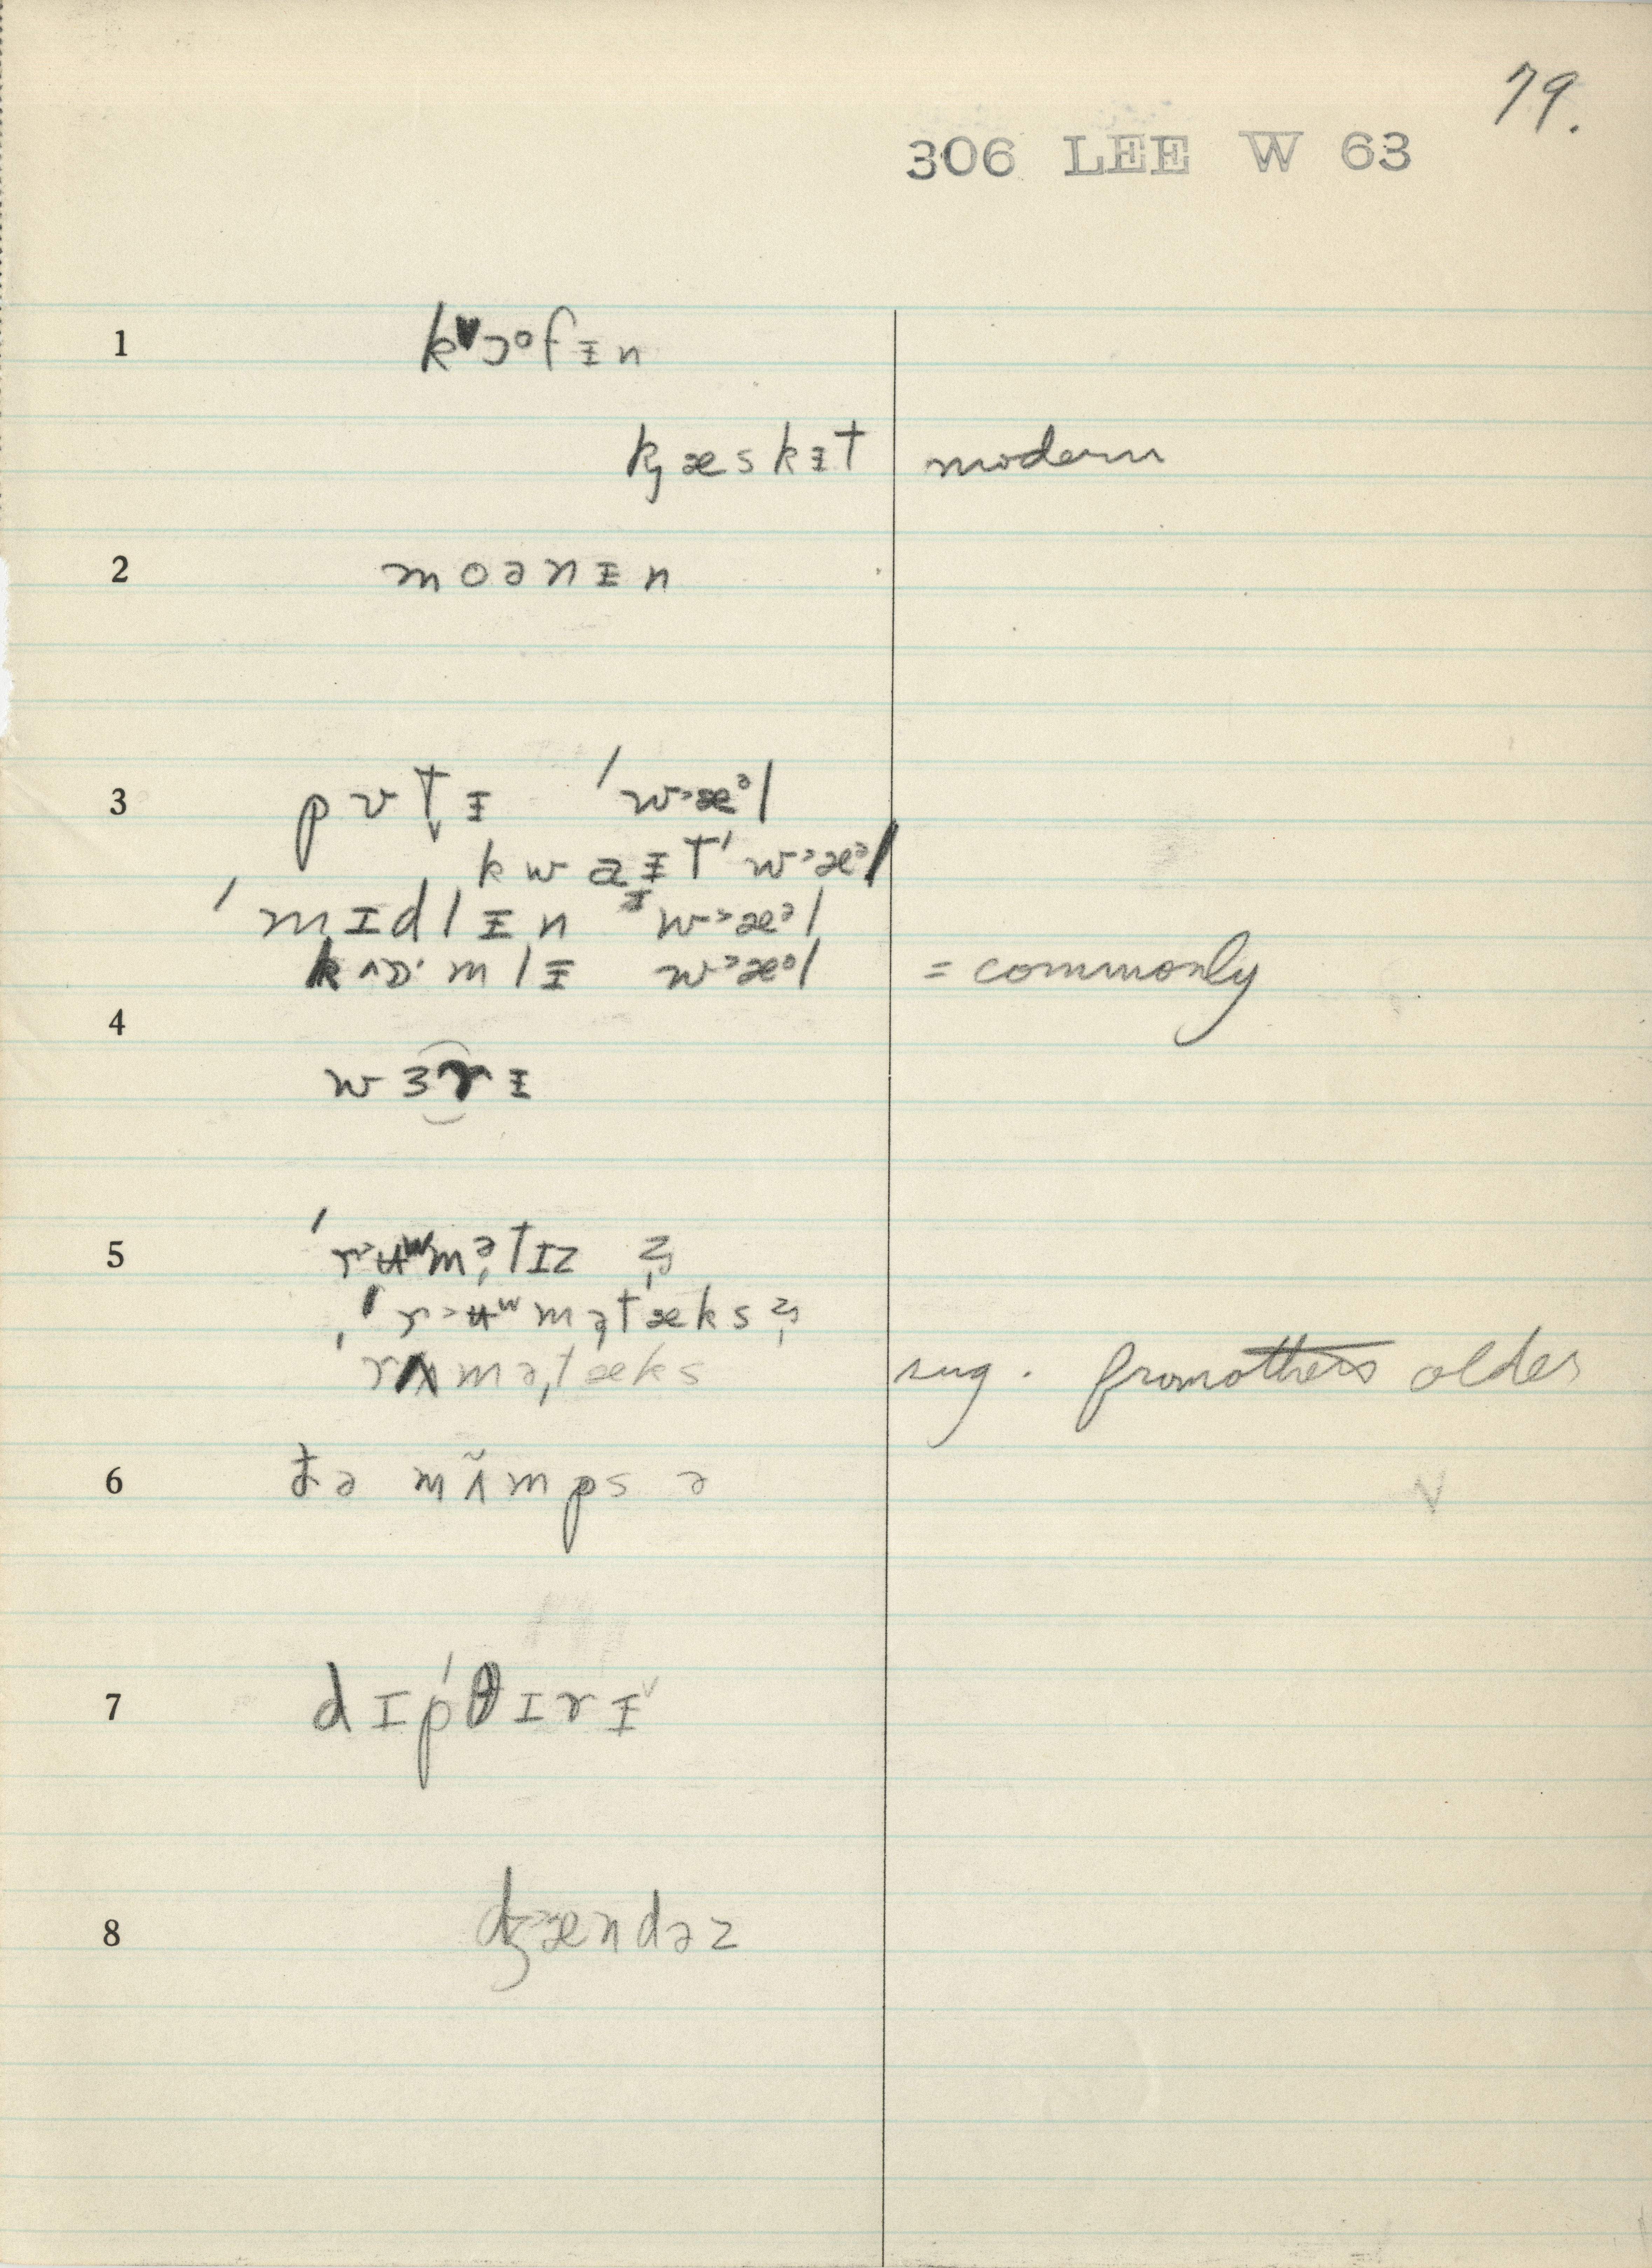 79.
306 LEE W 63
1 kᵛɔᵒfɪ̵n
k̡æskɪ̵t modern
2 moənɪ̵n
3 pᴜt̬ɪ̵ ˈw˃æᵊl
kwaɪ̵tˈw˃æᵊl
ˈmɪdlɪ̵n w˃æᵊl
kʌɒ·mlɪ̵ w˃æᵊl = commonly
4
wɜrɪ̵
5 ˈr˃ʉʷmətɪz
ˈr˃ʉʷmətæks
ˈrʌmətæks sug. from others older
6 đə mʌ̃mps ə
7 dɪpˈθɪrɪ̵
8 dʒændəz